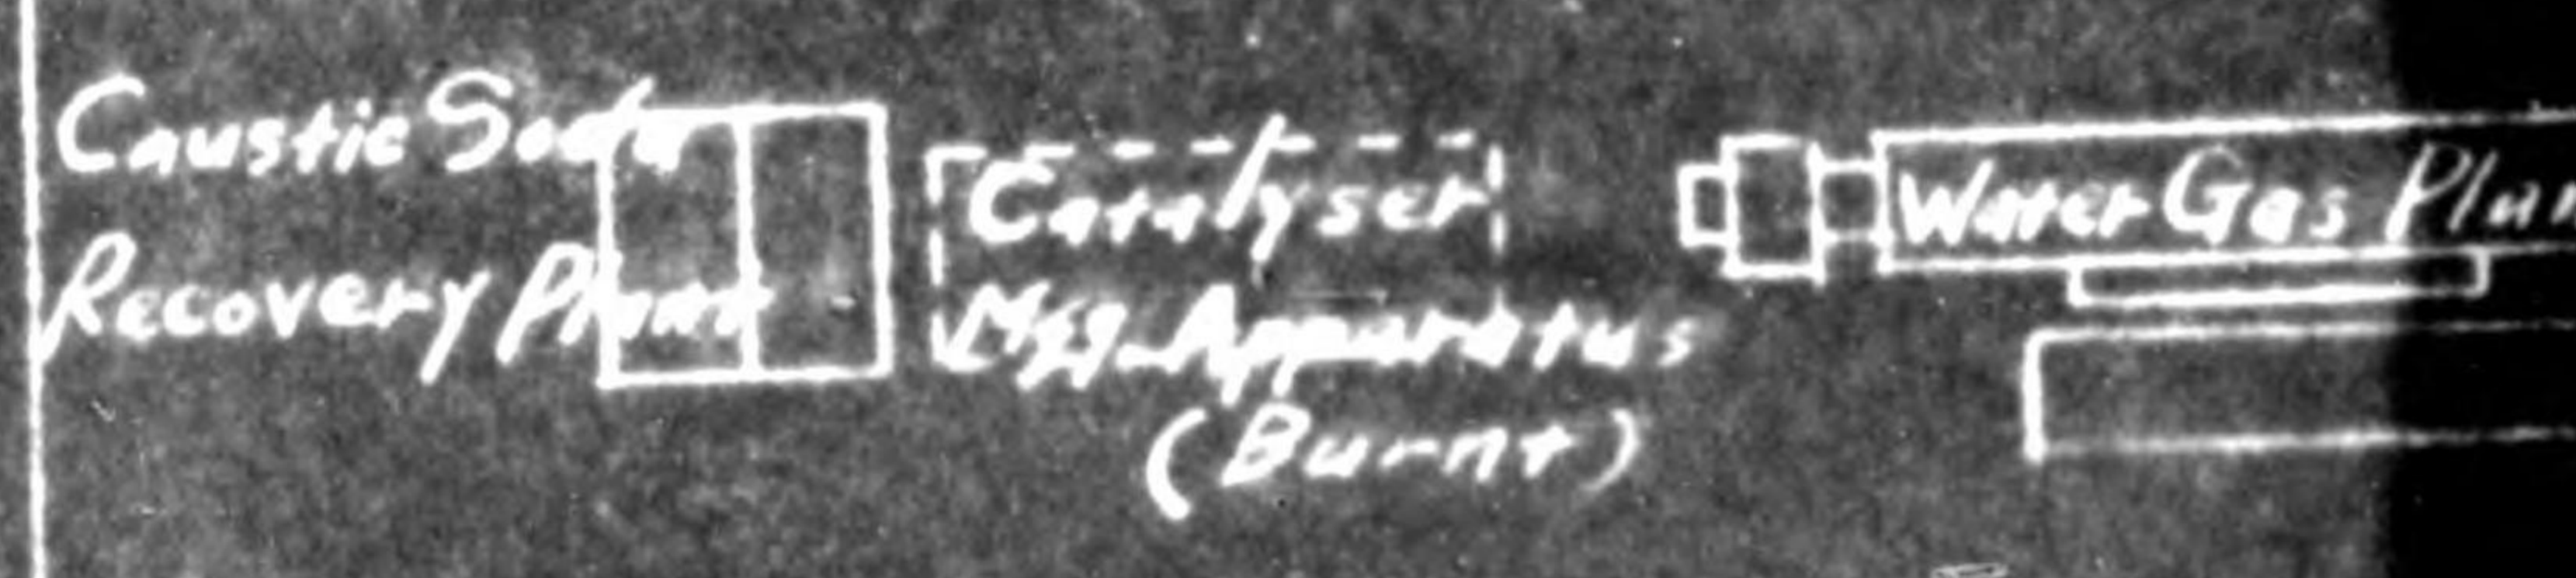 Caustic Soda
Recovery Plant
Catalyser
Mfg. Apparatus
(Burnt)
Water Gas Plan